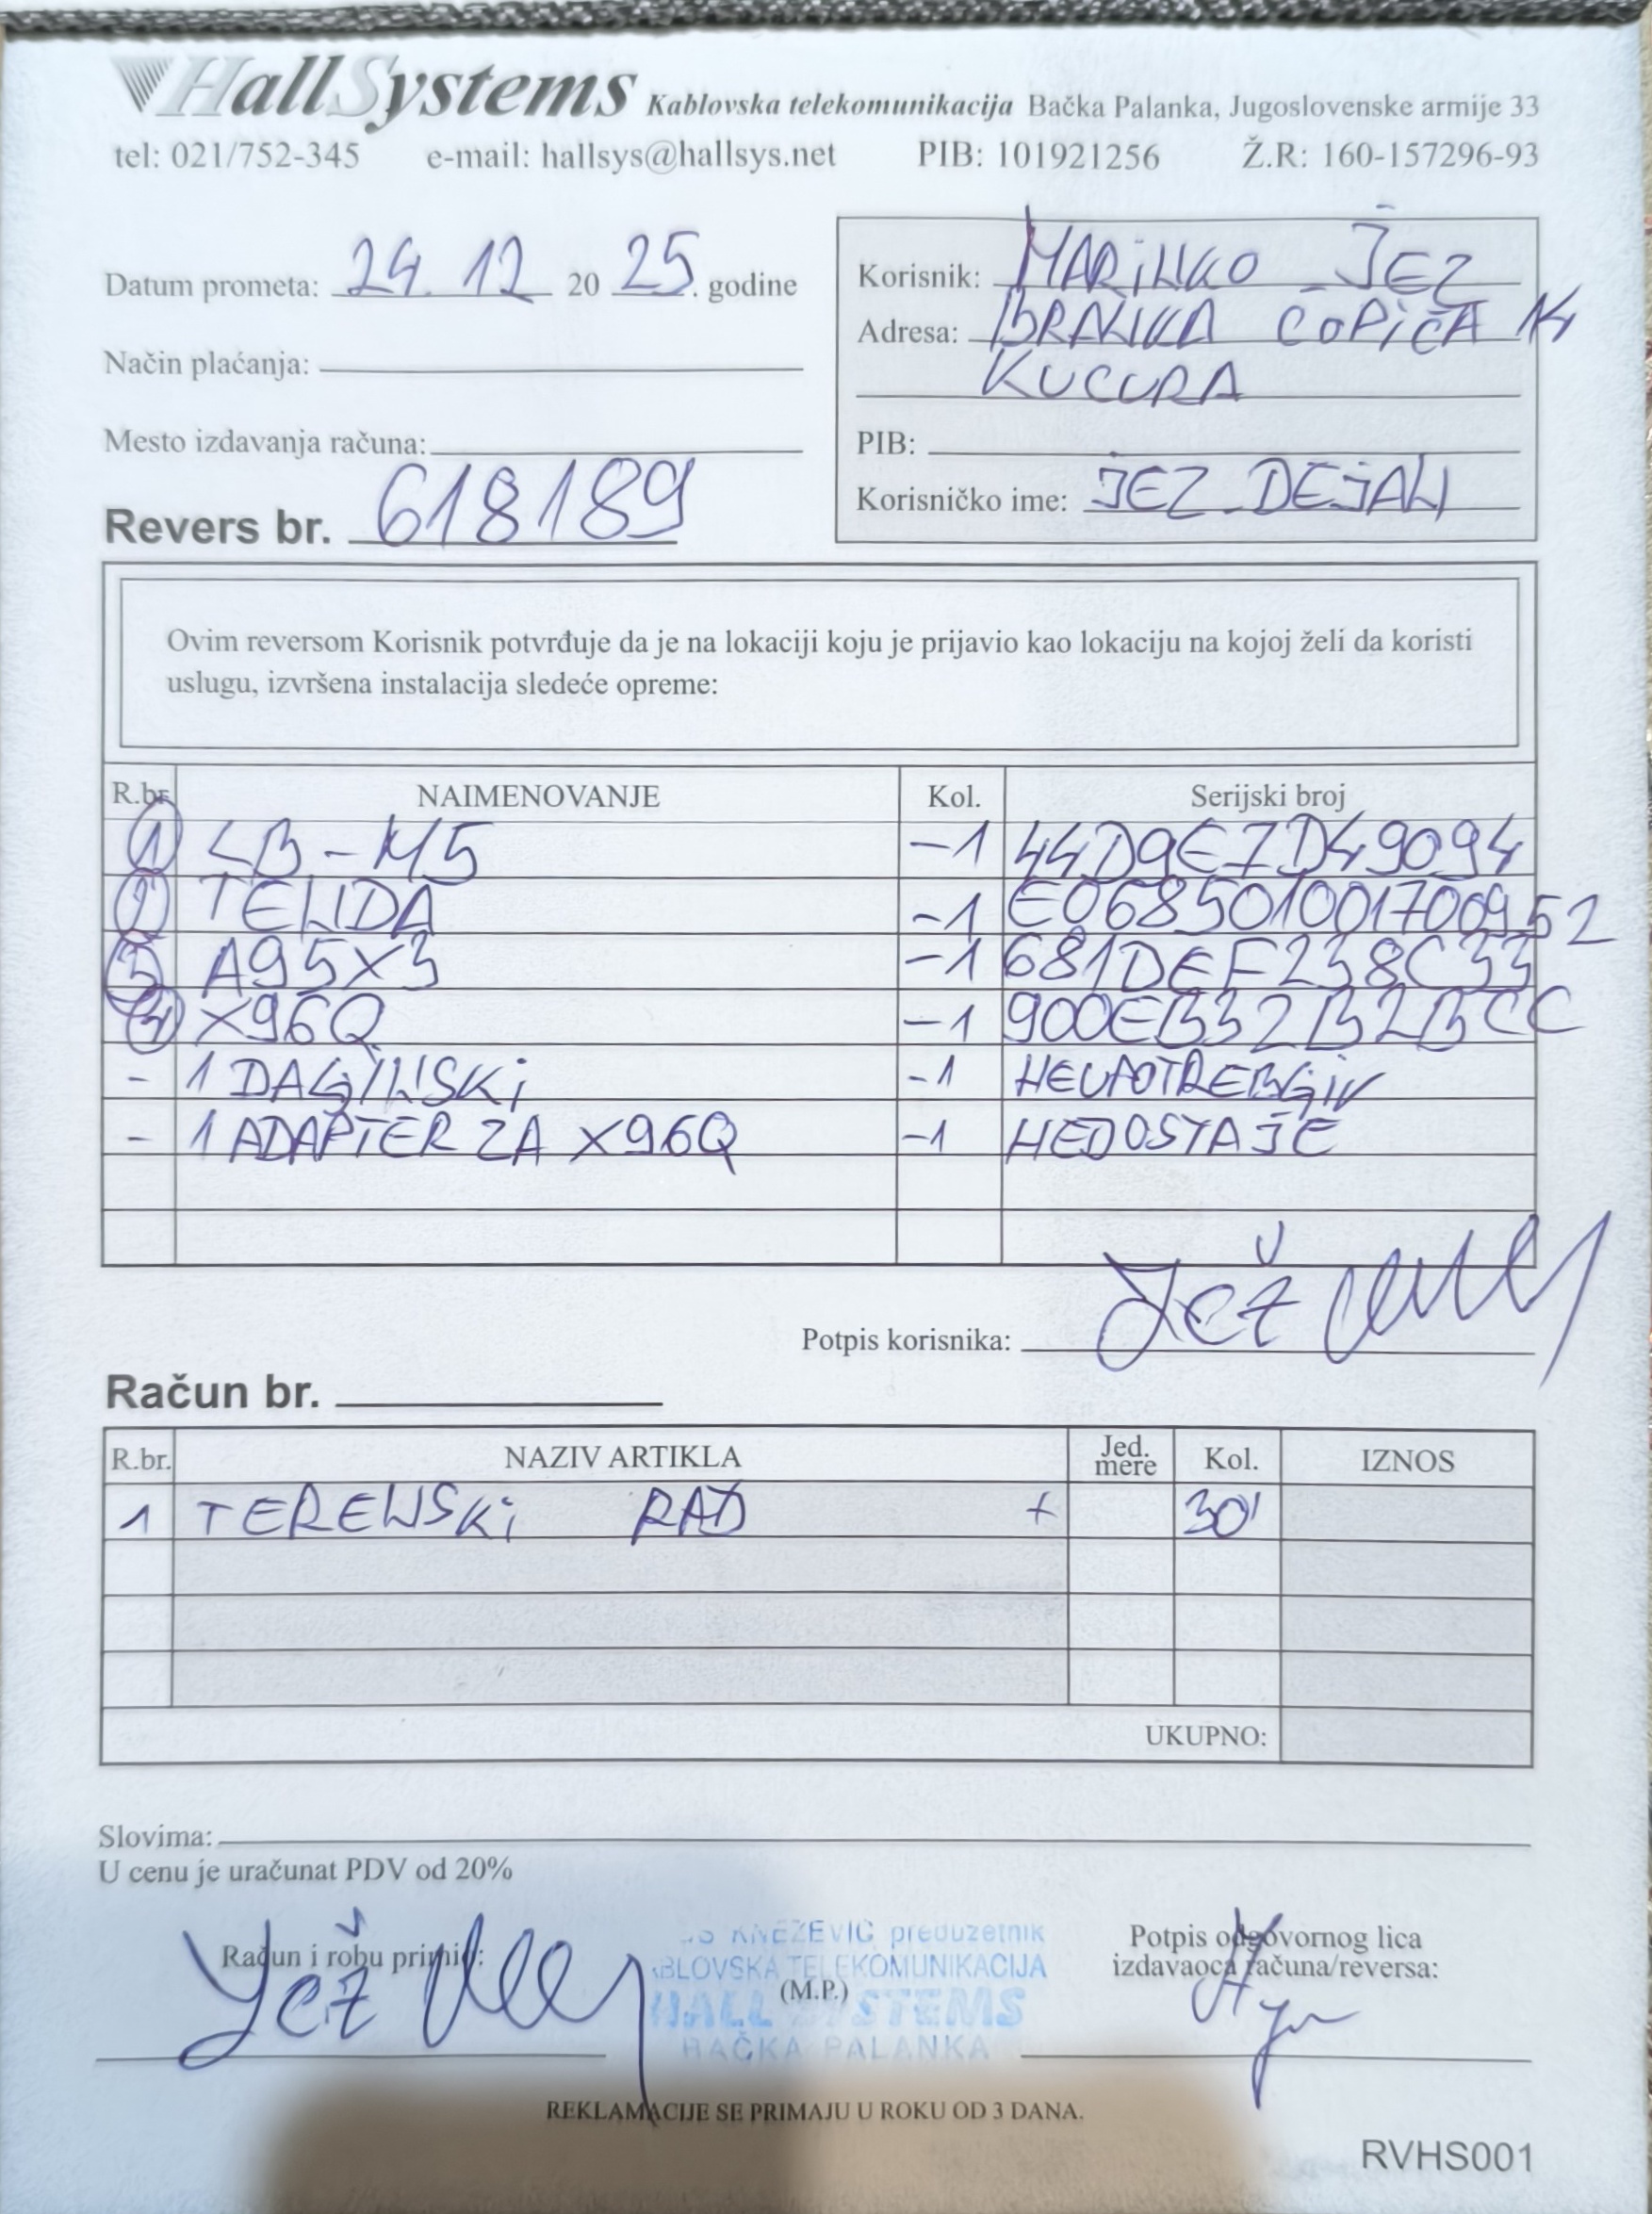 HallSystems Kablovska telekomunikacija Bačka Palanka, Jugoslovenske armije 33
tel: 021/752-345 e-mail: hallsys@hallsys.net PIB: 101921256 Ž.R: 160-157296-93
Datum prometa: 24. 12 20 25. godine
Način plaćanja:
Mesto izdavanja računa:
Revers br. 618189
Korisnik: MARINKO JEZ
Adresa: BRANKA ĆOPIĆA 14
KUCURA
PIB:
Korisničko ime: JEZ_DEJAN
Ovim reversom Korisnik potvrđuje da je na lokaciji koju je prijavio kao lokaciju na kojoj želi da koristi
uslugu, izvršena instalacija sledeće opreme:
R.br. NAIMENOVANJE Kol. Serijski broj
1 LB-M5 -1 44D9E7D49094
2 TENDA -1 E068501001700952
3 A95X3 -1 681DEF238C33
4 X96Q -1 900EB32B2BCC
- 1 DALJINSKI -1 NEUPOTREBLJIV
- 1 ADAPTER ZA X96Q -1 NEDOSTAJE
Potpis korisnika: Jež
Račun br.
R.br. NAZIV ARTIKLA Jed. mere Kol. IZNOS
1 TERENSKI RAD + 30'
UKUPNO:
Slovima:
U cenu je uračunat PDV od 20%
Račun i robu primio: Jež
KNEŽEVIĆ preduzetnik
BLOVSKA TELEKOMUNIKACIJA
(M.P.)
HALL SYSTEMS
BAČKA PALANKA
Potpis odgovornog lica
izdavaoca računa/reversa:
REKLAMACIJE SE PRIMAJU U ROKU OD 3 DANA.
RVHS001